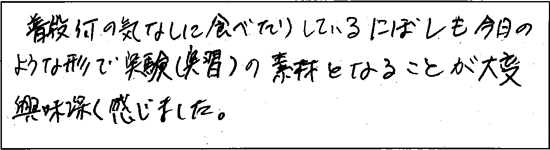 普段何の気なしに食べたりしているにぼしも今日の
ような形で実験(実習)の素材となることが大変
興味深く感じました。